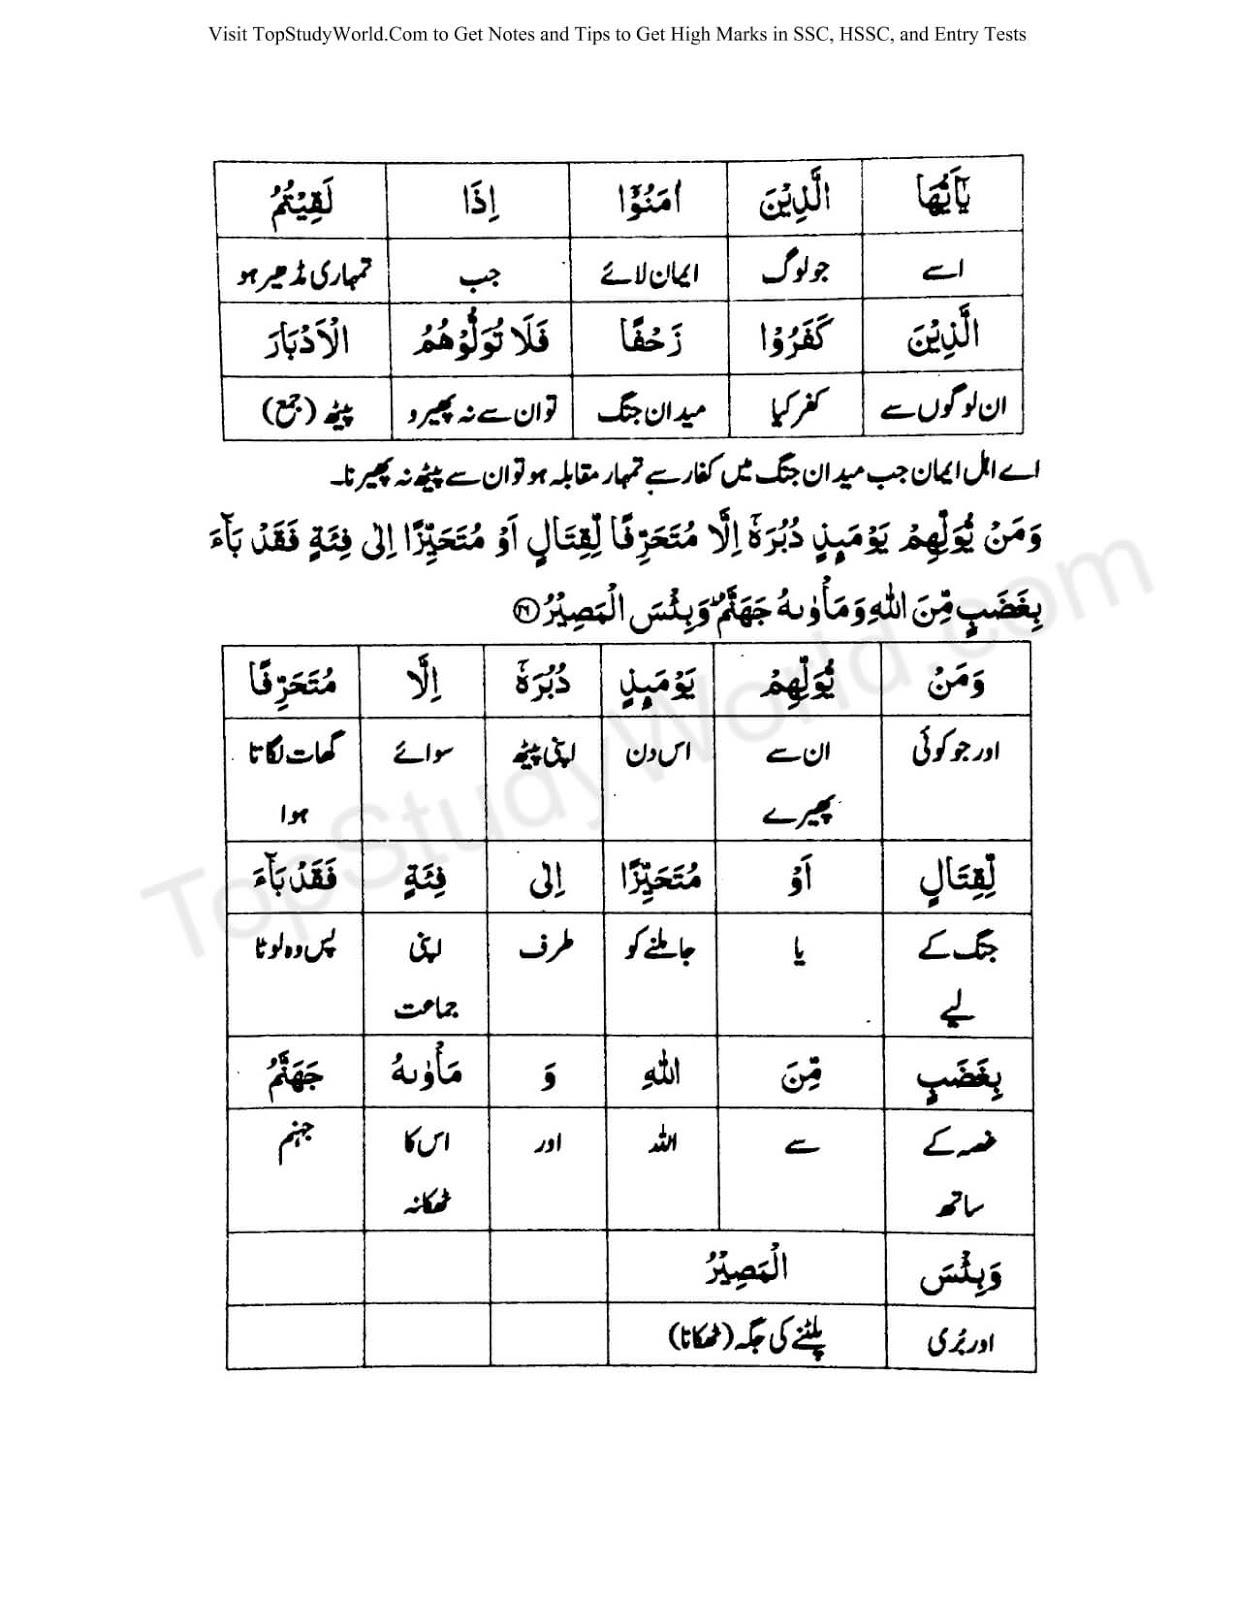 Visit TopStudyWorld.Com to Get Notes and Tips to Get High Marks in SSC, HSSC, and Entry Tests
يٰٓاَيُّهَا الَّذِيْنَ اٰمَنُوْٓا اِذَا لَقِيْتُمُ
اے جو لوگ ایمان لائے جب تمہاری مڈھیر ہو
الَّذِيْنَ كَفَرُوْا زَحْفًا فَلَا تُوَلُّوْهُمُ الْاَدْبَارَ
ان لوگوں سے کفر کیا میدان جنگ تو ان سے نہ پھیرو پیٹھ (جمع)
اے اہل ایمان جب میدان جنگ میں کفار سے تمہار مقابلہ ہو تو ان سے پیٹھ نہ پھیرنا۔
وَمَنْ يُّوَلِّهِمْ يَوْمَىِٕذٍ دُبُرَهٗٓ اِلَّا مُتَحَرِّفًا لِّقِتَالٍ اَوْ مُتَحَيِّزًا اِلٰى فِئَةٍ فَقَدْ بَآءَ
بِغَضَبٍ مِّنَ اللّٰهِ وَمَاْوٰىهُ جَهَنَّمُ ۭ وَبِئْسَ الْمَصِيْرُ ⁠
وَمَنْ يُّوَلِّهِمْ يَوْمَىِٕذٍ دُبُرَهٗٓ اِلَّا مُتَحَرِّفًا
اور جو کوئی ان سے اس دن اپنی پیٹھ سوائے گھات لگاتا
پھیرے ہوا
لِّقِتَالٍ اَوْ مُتَحَيِّزًا اِلٰى فِئَةٍ فَقَدْ بَآءَ
جنگ کے یا جا ملنے کو طرف اپنی پس وہ لوٹا
لیے جماعت
بِغَضَبٍ مِّنَ اللّٰهِ وَ مَاْوٰىهُ جَهَنَّمُ
غصہ کے سے اللہ اور اس کا جہنم
ساتھ ٹھکانہ
وَبِئْسَ الْمَصِيْرُ
اور بُری پلٹنے کی جگہ (ٹھکانا)
TopStudyWorld.com